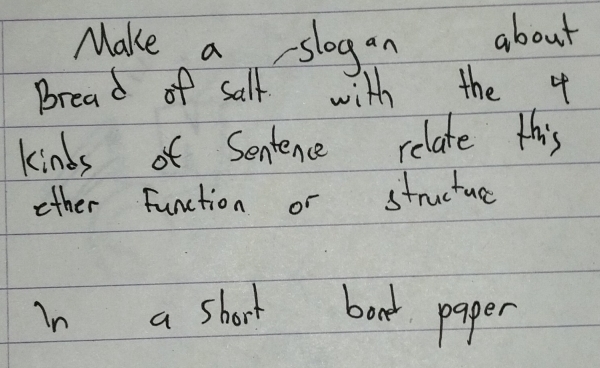 Make a slogan about
Bread of salt with the 4
kinds of Sentence relate this
ether Function or structure
In a short bond paper